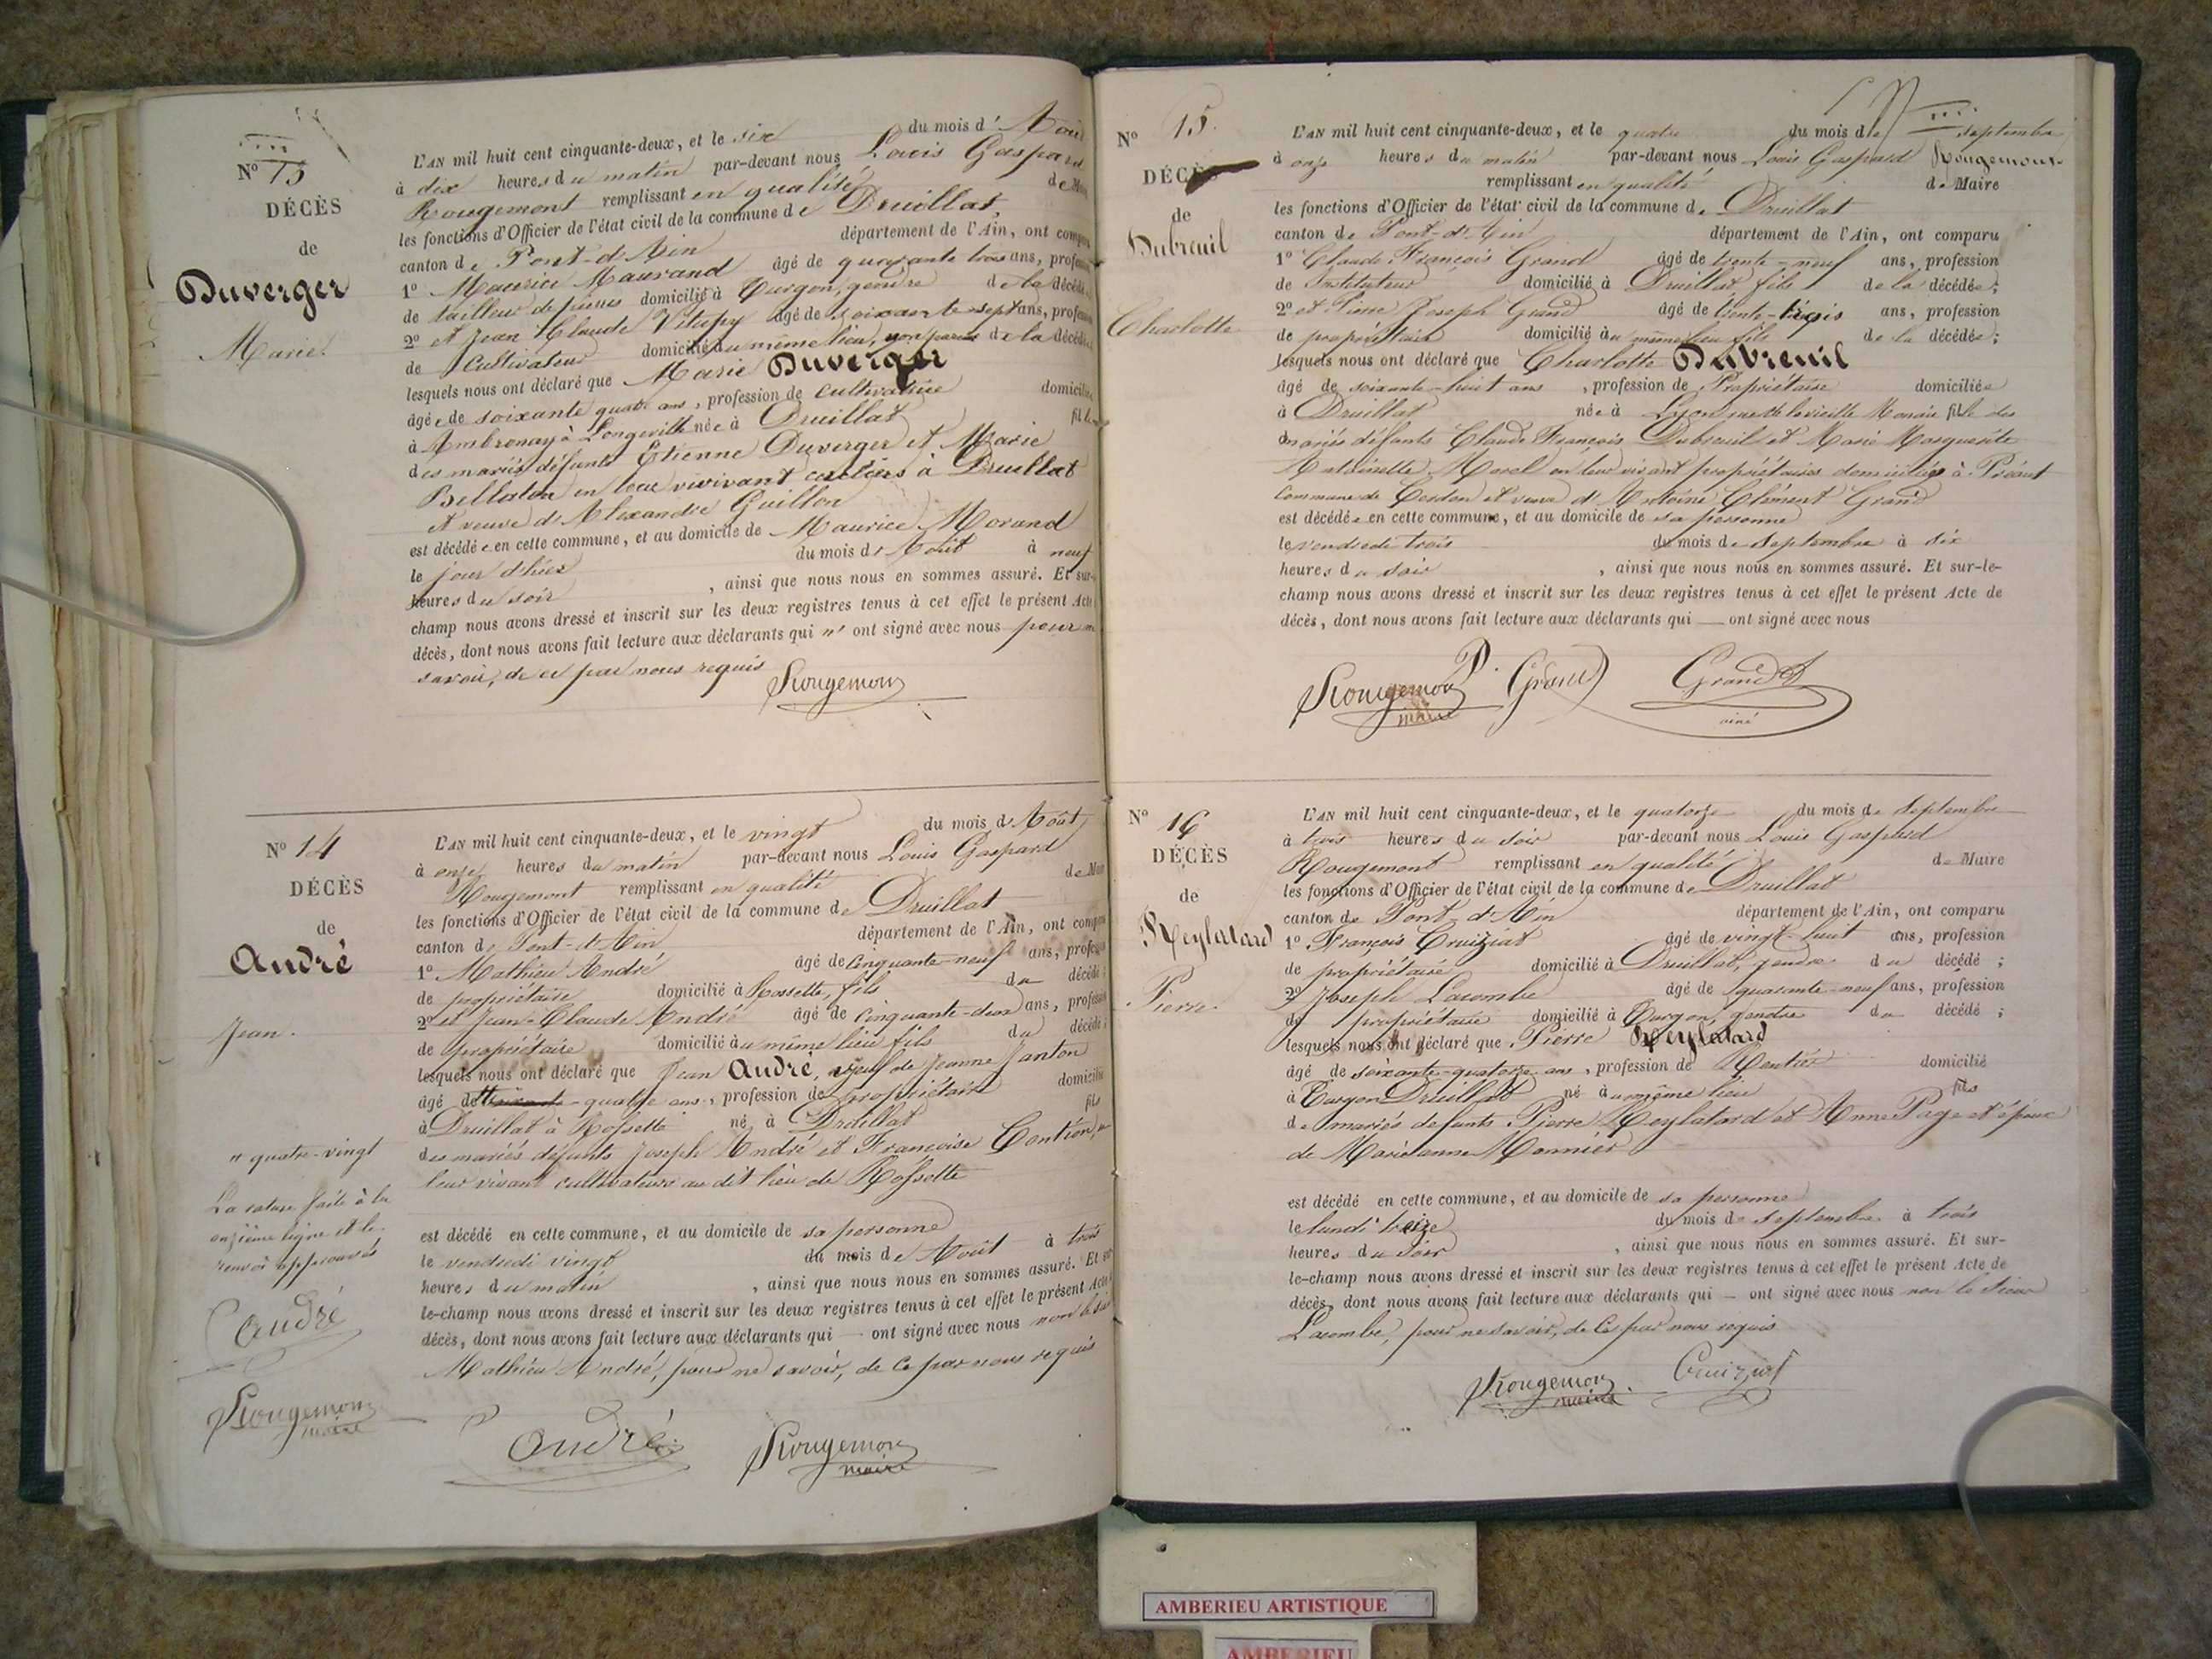 Nº 13
DÉCÈS
de
Duverger
Marie.
L'AN mil huit cent cinquante-deux, et le six du mois d'Août
à dix heures du matin par-devant nous Louis Gaspard
Rougemont remplissant en qualité de Mai
les fonctions d'Officier de l'état civil de la commune de Druillat,
canton de Pont-d'Ain département de l'Ain, ont comparu
1º Maurice Maurand âgé de quarante trois ans, profession
de tailleur de pierres domicilié à Turgon, gendre de la décédée
2º et Jean Claude Vitupy âgé de soixante sept ans, profession
de Cultivateur domicilié au même lieu, non parent de la décédée
lesquels nous ont déclaré que Marie Duverger
âgée de soixante quatre ans, profession de cultivatrice domiciliée
à Ambronay à Longeville née à Druillat fille
des mariés défunts Etienne Duverger et Marie
Bellaton en leur vivant à Druillat
et veuve d'Alexandre Guillon
est décédée en cette commune, et au domicile de Maurice Morand
le jour d'hier du mois d'Août à neuf
heures du soir, ainsi que nous nous en sommes assuré. Et sur-
champ nous avons dressé et inscrit sur les deux registres tenus à cet effet le présent Acte
décès, dont nous avons fait lecture aux déclarants qui n' ont signé avec nous pour ne
savoir, de ce par nous requis
Rougemont
Nº 14
DÉCÈS
de
André
Jean.
L'AN mil huit cent cinquante-deux, et le vingt du mois d'Août
à onze heures du matin par-devant nous Louis Gaspard
Rougemont remplissant en qualité de Mai
les fonctions d'Officier de l'état civil de la commune de Druillat
canton de Pont-d'Ain département de l'Ain, ont comparu
1º Mathieu André âgé de cinquante-neuf ans, profession
de propriétaire domicilié à Rossette, fils du décédé
2º et Jean-Claude André âgé de cinquante-deux ans, profession
de propriétaire domicilié au même lieu fils du décédé
lesquels nous ont déclaré que Jean André, veuf de Jeanne Janton
âgé de soixante-quatre ans, profession de propriétaire domicilié
à Druillat à Rossette né à Druillat fils
des mariés défunts Joseph André et Françoise Contion, en
leur vivant cultivateurs au dit lieu de Rossette
est décédé en cette commune, et au domicile de sa personne
le vendredi vingt du mois de Août à trois
heures du matin, ainsi que nous nous en sommes assuré. Et sur
le-champ nous avons dressé et inscrit sur les deux registres tenus à cet effet le présent Acte
décès, dont nous avons fait lecture aux déclarants qui — ont signé avec nous non le
Mathieu André, pour ne savoir, de ce par nous requis
" quatre-vingt
La rature faite à la
onzième ligne et le
renvoi approuvés
André
Rougemont
maire
André
Rougemont
maire
Nº 15.
DÉCÈS
de
Dubreuil
Charlotte
L'AN mil huit cent cinquante-deux, et le quatre du mois de septembre
à onze heures du matin par-devant nous Louis Gaspard Rougemont
remplissant en qualité de Maire
les fonctions d'Officier de l'état civil de la commune de Druillat
canton de Pont-d'Ain département de l'Ain, ont comparu
1º Claude François Grand âgé de trente-neuf ans, profession
de Instituteur domicilié à Druillat fils de la décédée;
2º et Pierre Joseph Grand âgé de trente-trois ans, profession
de propriétaire domicilié au même lieu fils de la décédée;
lesquels nous ont déclaré que Charlotte Dubreuil
âgé de soixante-huit ans, profession de Propriétaire domiciliée
à Druillat née à Lyon rue de la vieille Monnaie fille des
mariés défunts Claude François Dubreuil et Marie Marguerite
Antoinette Morel en leur vivant propriétaires domiciliés à
commune de Cordon et veuve d'Antoine Clément Grand
est décédée en cette commune, et au domicile de sa personne
le vendredi trois du mois de septembre à dix
heures du soir, ainsi que nous nous en sommes assuré. Et sur-le-
champ nous avons dressé et inscrit sur les deux registres tenus à cet effet le présent Acte de
décès, dont nous avons fait lecture aux déclarants qui — ont signé avec nous
Rougemont maire P. Grand Grand
ainé
Nº 16
DÉCÈS
de
Reylatard
Pierre.
L'AN mil huit cent cinquante-deux, et le quatorze du mois de Septembre
à trois heures du soir par-devant nous Louis Gaspard
Rougemont remplissant en qualité de Maire
les fonctions d'Officier de l'état civil de la commune de Druillat
canton de Pont-d'Ain département de l'Ain, ont comparu
1º François Cruiziat âgé de vingt-huit ans, profession
de propriétaire domicilié à Druillat, gendre du décédé;
2º Joseph Lacombe âgé de quarante-neuf ans, profession
de propriétaire domicilié à Turgon, gendre du décédé;
lesquels nous ont déclaré que Pierre Reylatard
âgé de soixante-quatorze ans, profession de Rentier domicilié
à Turgon Druillat né au même lieu fils
de mariés défunts Pierre Reylatard et Anne Page et époux
de Marieanne Monnier
est décédé en cette commune, et au domicile de sa personne
le lundi treize du mois de septembre à trois
heures du soir, ainsi que nous nous en sommes assuré. Et sur-
le-champ nous avons dressé et inscrit sur les deux registres tenus à cet effet le présent Acte de
décès, dont nous avons fait lecture aux déclarants qui — ont signé avec nous non le sieur
Lacombe, pour ne savoir, de ce par nous requis
Rougemont Cruiziat
maire
AMBERIEU ARTISTIQUE
AMBERIEU